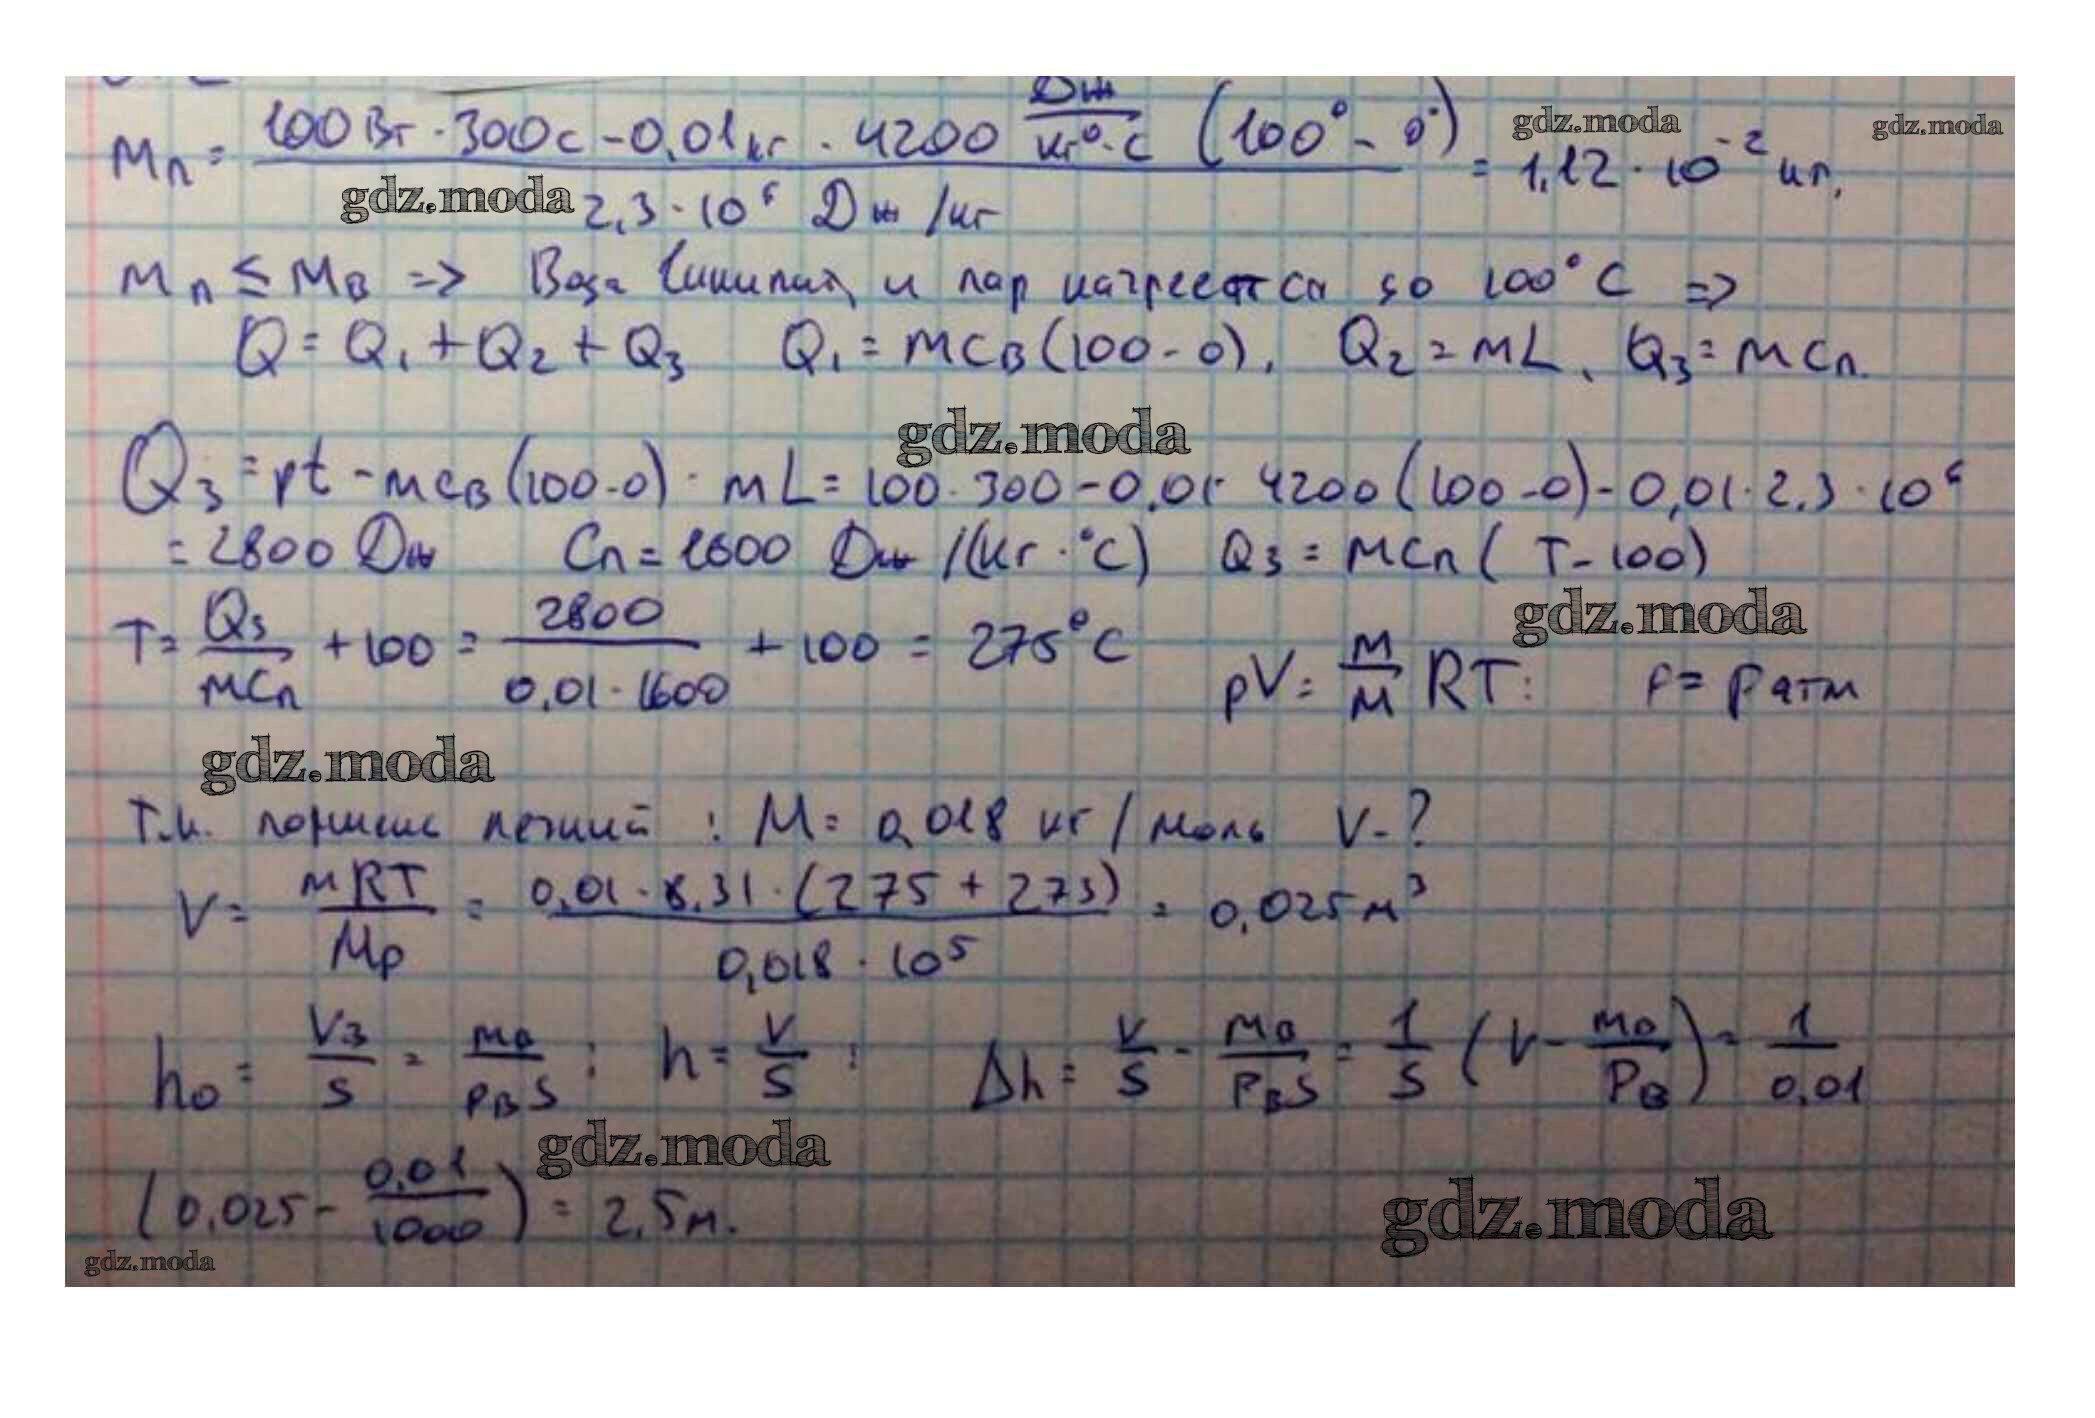 Mп = 100Вт · 300с - 0,01кг · 4200 Дж/кг°·С (100° - 0°) / 2,3 · 10⁶ Дж/кг = 1,12 · 10⁻² кг.
gdz.moda gdz.moda
gdz.moda
Mп ≤ MВ => Вода и пар нагреется до 100°С =>
Q = Q₁ + Q₂ + Q₃ Q₁ = mcВ(100-0), Q₂ = mL, Q₃ = mcп.
gdz.moda
Q₃ = pt - mcВ(100-0) · mL = 100·300 - 0,01· 4200(100-0) - 0,01·2,3·10⁶
= 2800 Дж Cп = 1600 Дж/(кг·°С) Q₃ = mcп(T-100)
gdz.moda
T = Q₃/mcп + 100 = 2800/0,01·1600 + 100 = 275°С pV = m/M RT: p = pатм
gdz.moda
Т.к. поршень легкий : M = 0,018 кг/моль V-?
V = mRT/Mp = 0,01·8,31·(275+273)/0,018·10⁵ = 0,025м³
h₀ = Vв/S = mв/pвS : h = V/S : Δh = V/S - mв/pвS = 1/S (V - mв/pв) = 1/0,01
gdz.moda
(0,025 - 0,01/1000) = 2,5м.
gdz.moda
gdz.moda